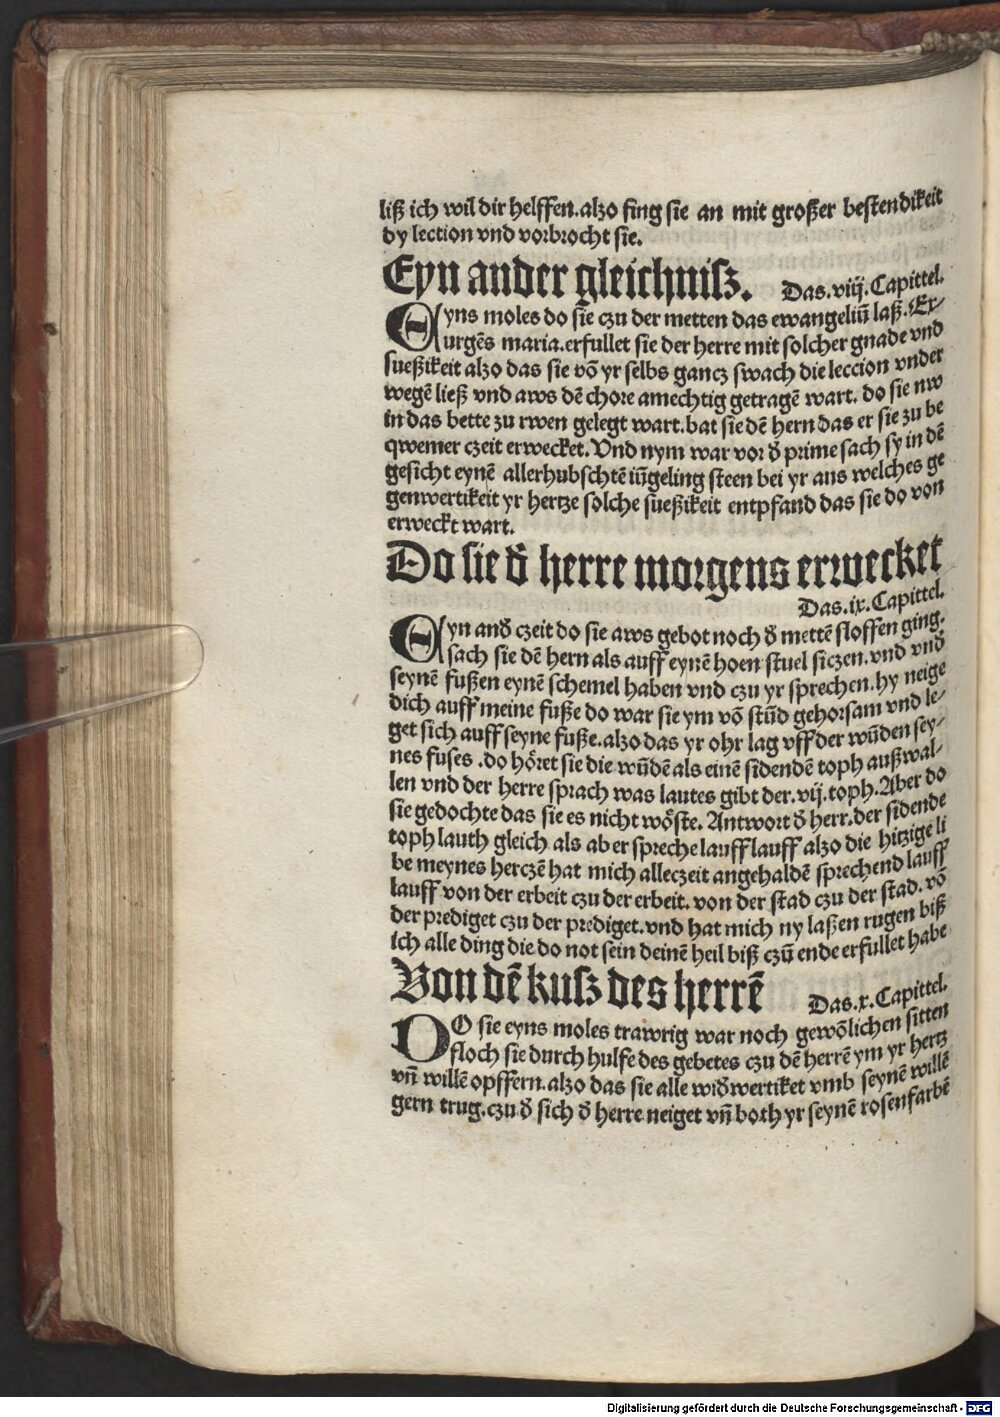 liß ich wil dir helffen.alzo fing sie an mit großer bestendikeit
dy lection vnd vorbrocht sie.
Eyn ander gleichnisz. Das.viij.Capittel.
Eyns moles do sie czu der metten das ewangeliū laß.Ex-
urgēs maria.erfullet sie der herre mit solcher gnade vnd
sueßikeit alzo das sie vō yr selbs gancz swach die leccion vnder
wegē ließ vnd aws dē chore amechtig getragē wart. do sie nw
in das bette zu rwen gelegt wart.bat sie dē hern das er sie zu be
qwemer czeit erwecket.Vnd nym war vor d̄ prime sach sy in dē
gesicht eynē allerhubschtē iūgeling steen bei yr aus welches ge
genwertikeit yr hertze solche sueßikeit entpfand das sie do von
erweckt wart.
Do sie d̄ herre morgens erwecket
Das.ix.Capittel.
Eyn and̄ czeit do sie aws gebot noch d̄ mettē sloffen ging.
sach sie dē hern als auff eynē hoen stuel siczen.vnd vnd̄
seynē fußen eynē schemel haben vnd czu yr sprechen.hy neige
dich auff meine fuße do war sie ym vō stūd gehorsam vnd le-
get sich auff seyne fuße.alzo das yr ohr lag vff der wūden sey-
nes fuses.do höret sie die wūdē als einē sidendē toph außwal-
len vnd der herre sprach was lautes gibt der.vij.toph.Aber do
sie gedochte das sie es nicht wöste. Antwort d̄ herr.der sidende
toph lauth gleich als ab er spreche lauff lauff alzo die hitzige li
be meynes herczē hat mich alleczeit angehaldē sprechend lauff
lauff von der erbeit czu der erbeit.von der stad czu der stad.vō
der prediget czu der prediget.vnd hat mich ny laßen rugen biß
ich alle ding die do not sein deinē heil biß czū ende erfullet habe
Von dē kusz des herrē Das.x.Capittel.
DO sie eyns moles trawrig war noch gewōlichen sitten
floch sie durch hulfe des gebetes czu dē herrē ym yr hertz
vn̄ willē opffern.alzo das sie alle wid̄wertiket vmb seynē willē
gern trug.czu d̄ sich d̄ herre neiget vn̄ both yr seynē rosenfarbē
Digitalisierung gefördert durch die Deutsche Forschungsgemeinschaft - DFG